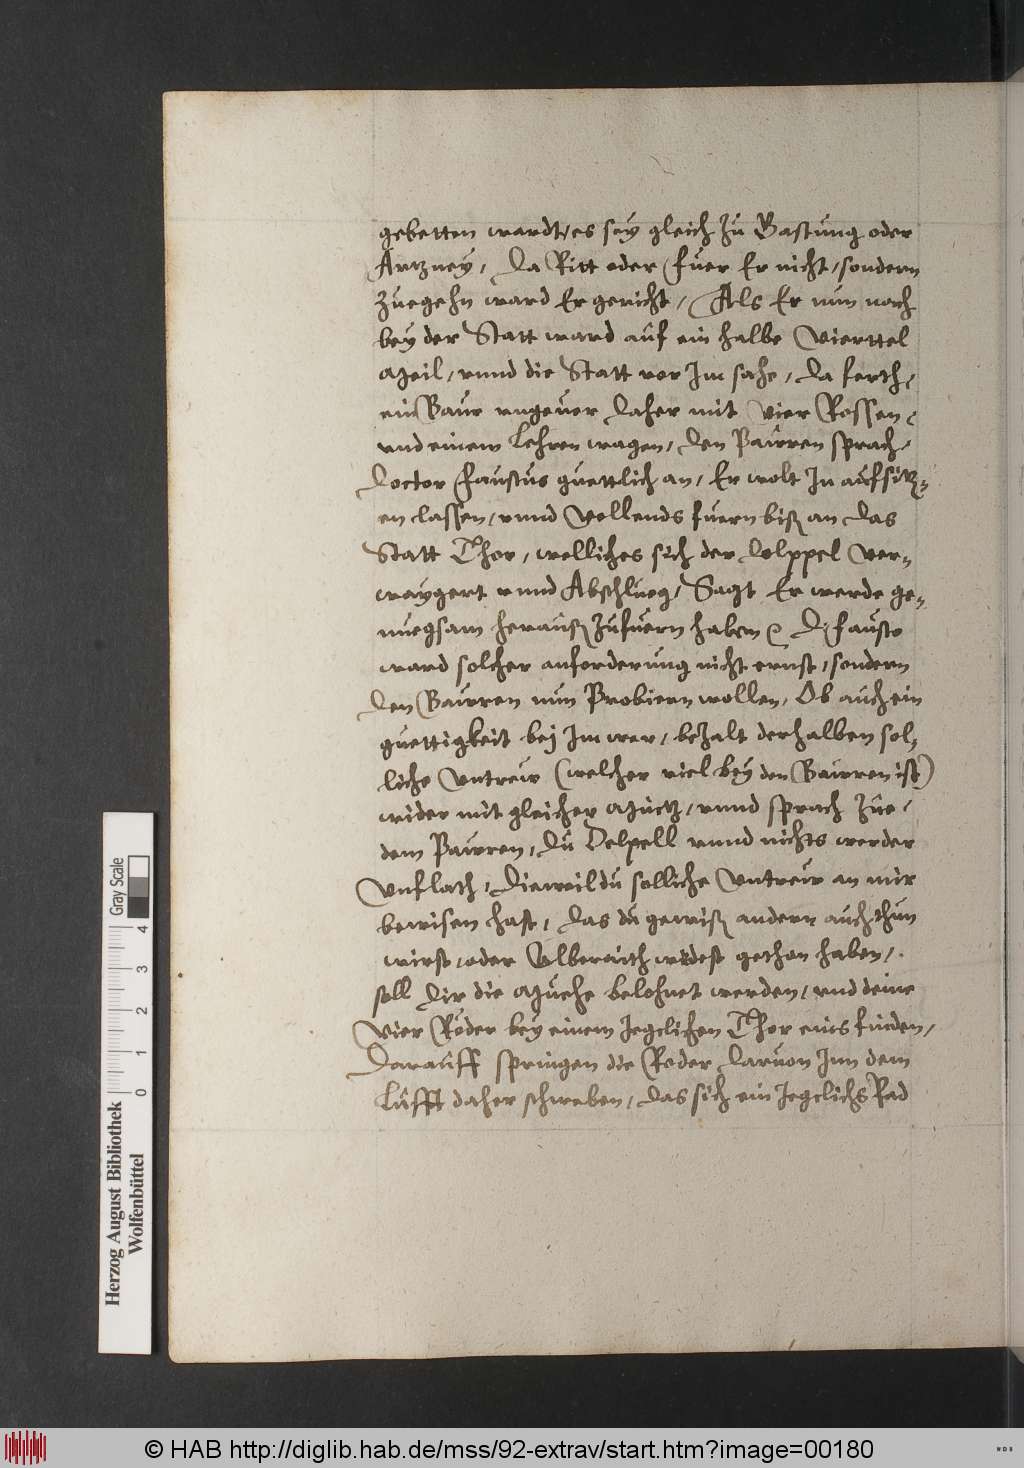 gebetten wardt, es sey gleich zú Gastung oder
Artzney, Da Ritt oder fuer Er nicht, sondern
zuegehn ward Er gericht, Als Er nun noch
bey der Statt ward auf ein halbe Vierttel
Meil, vnnd die Statt vor Im sahe, da ferth,
ein Baur vngeuer daher mit vier Rossen,
vnd einem Lehren wagen, den Paurren sprach,
Doctor Faustus guettlich an, Er wolt In aufsitz-
en lassen, vnnd Vollends fuern biß an das
Statt Thor, welliches sich der Dolppel ver-
waygert vnnd Abschlueg, Sagt Er werde ge-
nuegsam herauß zufuern haben D. Fausto
ward solcher anforderung nicht ernst, sondern
den Bawren nun Probiern wollen, Ob auch ein
guettigkeit bej Im wer, bezalt derhalben sol-
liche Vntrew (welcher viel bey den Bawren ist)
wider mit gleicher Müntz, vnnd sprach zue,
dem Pawren, Du Delpell vnnd nichts werder
Vnflath, Dieweil du solliche Vntrew an mir
bewisen hast, das du gewiß andern auch thun
wirst, oder Alberaith wirdest gethon haben,
soll Dir die Muehe belohnet werden, vnd deine
vier Röder bey einem Jegclichen Thor eins finden,
Darauff springen die Reder daruon Inn dem
Lufft daher schweben, das sich ein Jegclichs Rad
Herzog August Bibliothek
Wolfenbüttel
0 1 2 3 4
Gray Scale
© HAB http://diglib.hab.de/mss/92-extrav/start.htm?image=00180